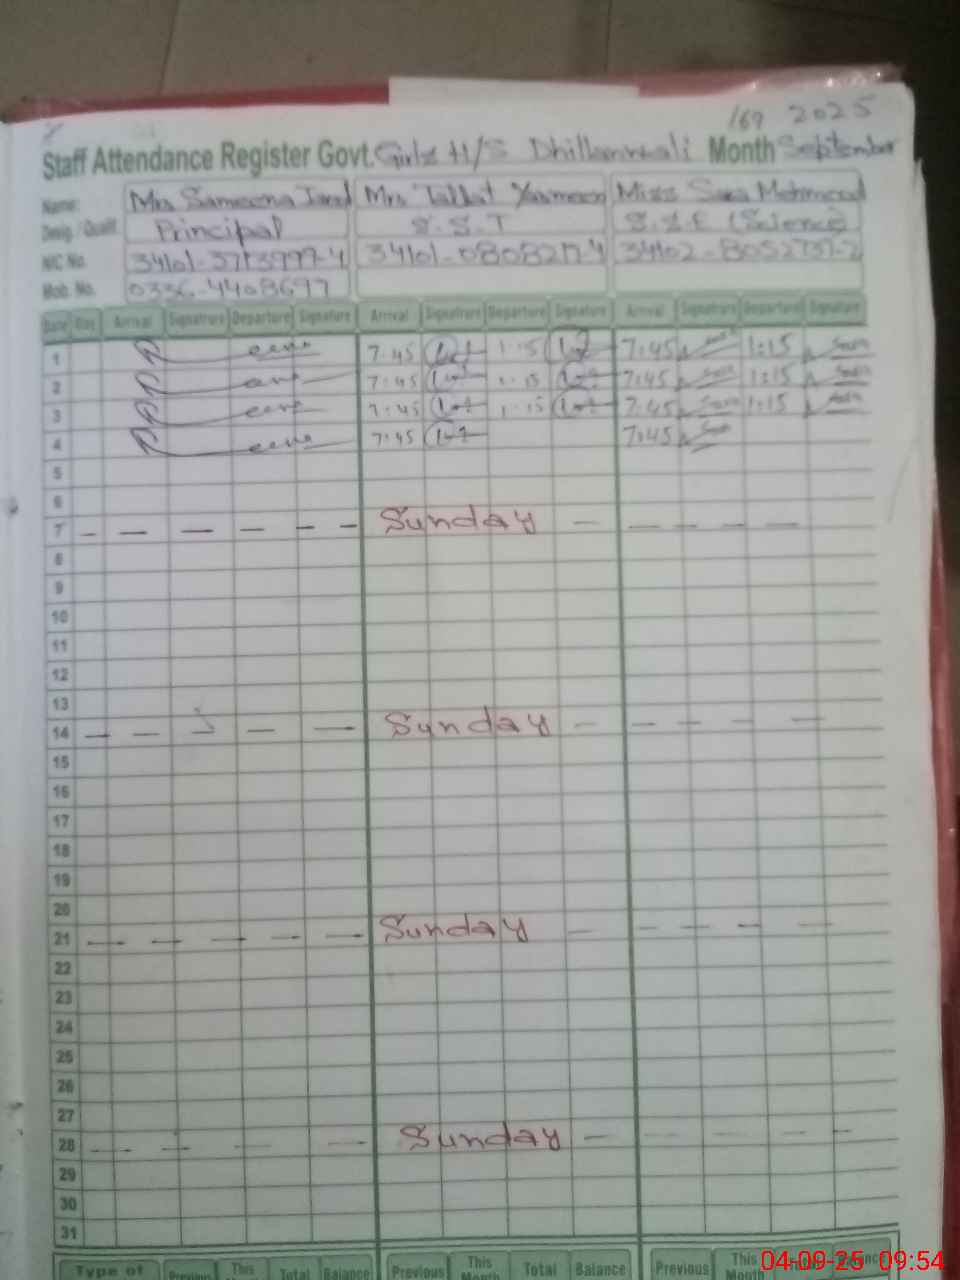 169 2025
Staff Attendance Register Govt. Girls H/S Dhillanwali Month September
Name: Mrs Sameena Mrs Tallat Yasmeen Miss Sara Mehmood
Desig. / Qualif. Principal S.S.T S.S.E (Science)
NIC No.
Mob. No. 0336-4408697
Date Day Arrival Signature Departure Signature Arrival Signature Departure Signature Arrival Signature Departure Signature
1 7.45 1.15 7:45 1:15
2 7:45 1.15 7:45 1:15
3 7:45 1.15 7:45 1:15
4 7:45 7:45
5
6
7 — — — — — — Sunday — — — — —
8
9
10
11
12
13
14 — — — — Sunday — — — — —
15
16
17
18
19
20
21 — — — — — Sunday — — — — —
22
23
24
25
26
27
28 — — — — Sunday — — — — —
29
30
31
Type of Previous This Total Balance Previous This Month Total Balance Previous This Balance
04-09-25 09:54